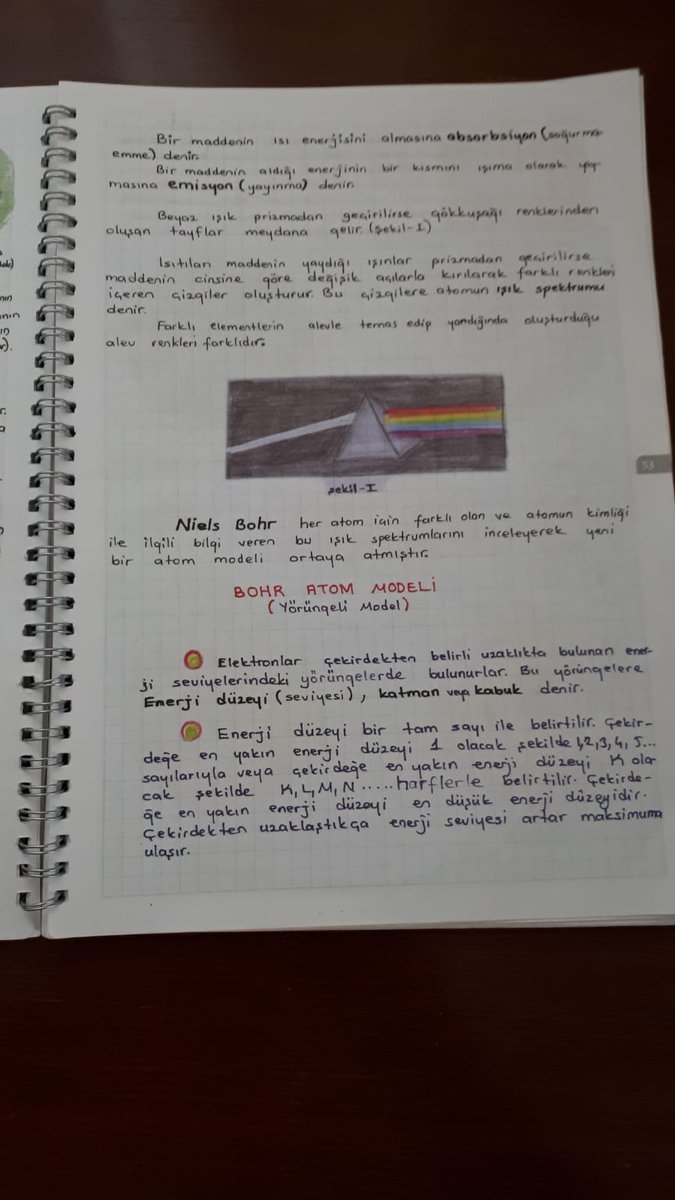 Bir maddenin ısı enerjisini almasına absorbsiyon (soğurma
emme) denir.
Bir maddenin aldığı enerjinin bir kısmını ışıma olarak yay-
masına emisyon (yayınma) denir
Beyaz ışık prizmadan geçirilirse gökkuşağı renklerinden
oluşan tayflar meydana gelir. (Şekil-I)
Isıtılan maddenin yaydığı ışınlar prizmadan geçirilirse
maddenin cinsine göre değişik açılarla kırılarak farklı renkleri
içeren çizgiler oluşturur. Bu çizgilere atomun ışık spektrumu
denir.
Farklı elementlerin alevle temas edip yandığında oluşturduğu
alev renkleri farklıdır.
şekil-I
53
Niels Bohr her atom için farklı olan ve atomun kimliği
ile ilgili bilgi veren bu ışık spektrumlarını inceleyerek yeni
bir atom modeli ortaya atmıştır.
BOHR ATOM MODELİ
(Yörüngeli Model)
Elektronlar çekirdekten belirli uzaklıkta bulunan ener-
ji seviyelerindeki yörüngelerde bulunurlar. Bu yörüngelere
Enerji düzeyi (seviyesi), katman veya kabuk denir.
Enerji düzeyi bir tam sayı ile belirtilir. Çekir-
değe en yakın enerji düzeyi 1 olacak şekilde 1,2,3,4,5...
sayılarıyla veya çekirdeğe en yakın enerji düzeyi K ola-
cak şekilde K,L,M,N.....harflerle belirtilir. Çekirde-
ğe en yakın enerji düzeyi en düşük enerji düzeyidir.
Çekirdekten uzaklaştıkça enerji seviyesi artar maksimuma
ulaşır.